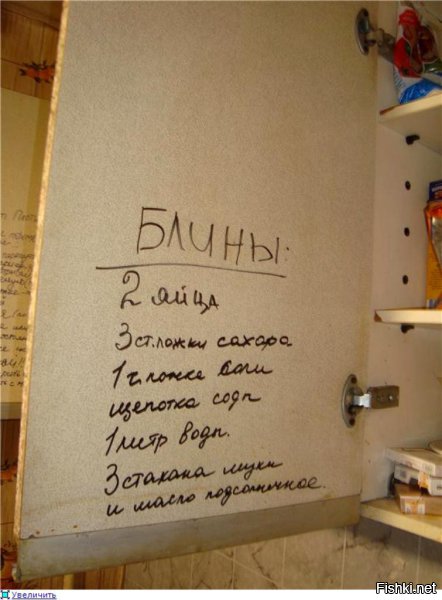 БЛИНЫ:
2 яйца
3 ст.ложки сахара
1 ч.ложка соли
щепотка соды
1 литр воды.
3 стакана муки
и масло подсолнечное.
Увеличить
Fishki.net